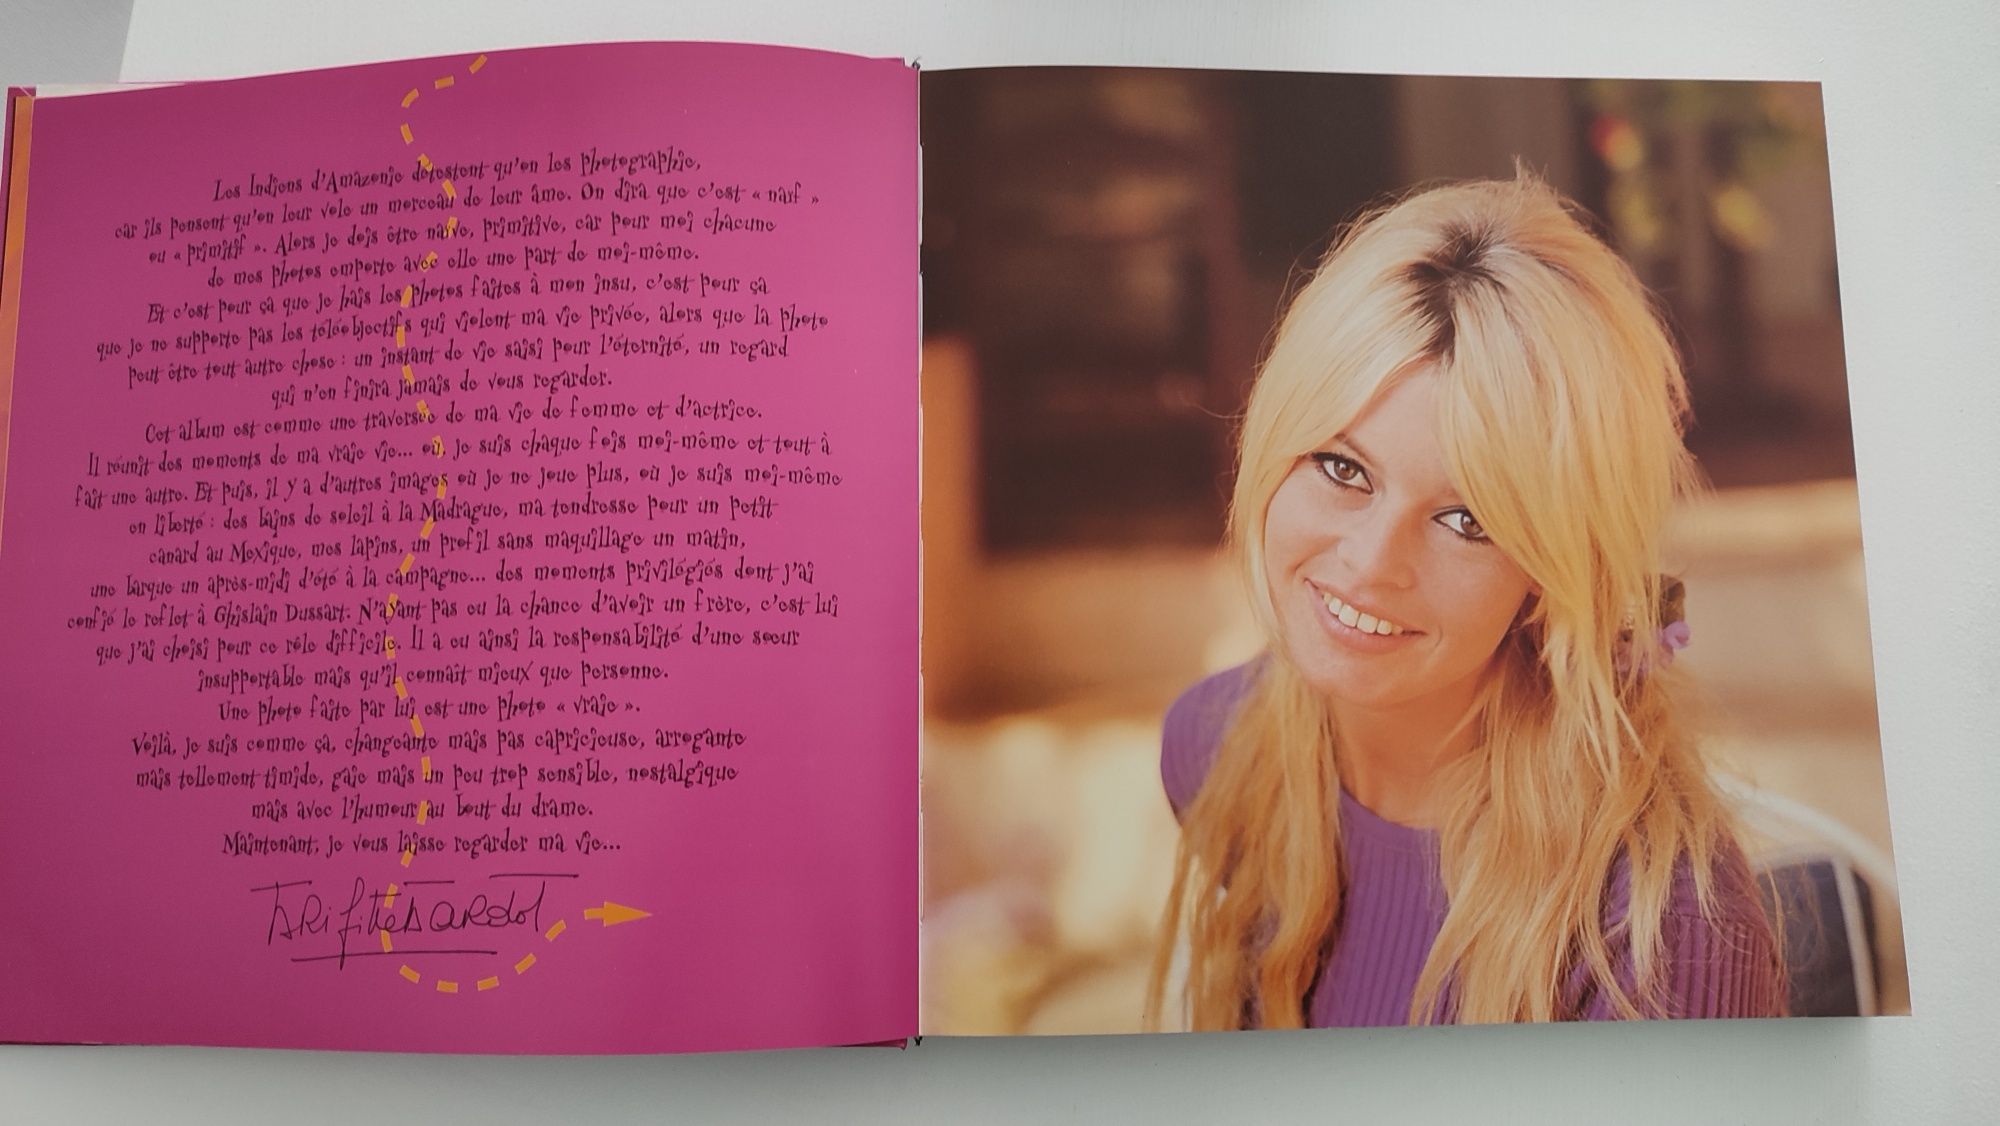 Les Indiens d'Amazonie détestent qu'on les photographie,
car ils pensent qu'on leur vole un morceau de leur âme. On dira que c'est « naïf »
ou « primitif ». Alors je dois être naïve, primitive, car pour moi chacune
de mes photos emporte avec elle une part de moi-même.
Et c'est pour ça que je hais les photos faites à mon insu, c'est pour ça
que je ne supporte pas les téléobjectifs qui violent ma vie privée, alors que la photo
peut être tout autre chose : un instant de vie saisi pour l'éternité, un regard
qui n'en finira jamais de vous regarder.
Cet album est comme une traversée de ma vie de femme et d'actrice.
Il réunit des moments de ma vraie vie... où je suis chaque fois moi-même et tout à
fait une autre. Et puis, il y a d'autres images où je ne joue plus, où je suis moi-même
en liberté : des bains de soleil à la Madrague, ma tendresse pour un petit
canard au Mexique, mes lapins, un profil sans maquillage un matin,
une barque un après-midi d'été à la campagne... des moments privilégiés dont j'ai
confié le reflet à Ghislain Dussart. N'ayant pas eu la chance d'avoir un frère, c'est lui
que j'ai choisi pour ce rôle difficile. Il a eu ainsi la responsabilité d'une sœur
insupportable mais qu'il connaît mieux que personne.
Une photo faite par lui est une photo « vraie ».
Voilà, je suis comme ça, changeante mais pas capricieuse, arrogante
mais tellement timide, gaie mais un peu trop sensible, nostalgique
mais avec l'humour au bout du drame.
Maintenant, je vous laisse regarder ma vie...
Brigitte Bardot